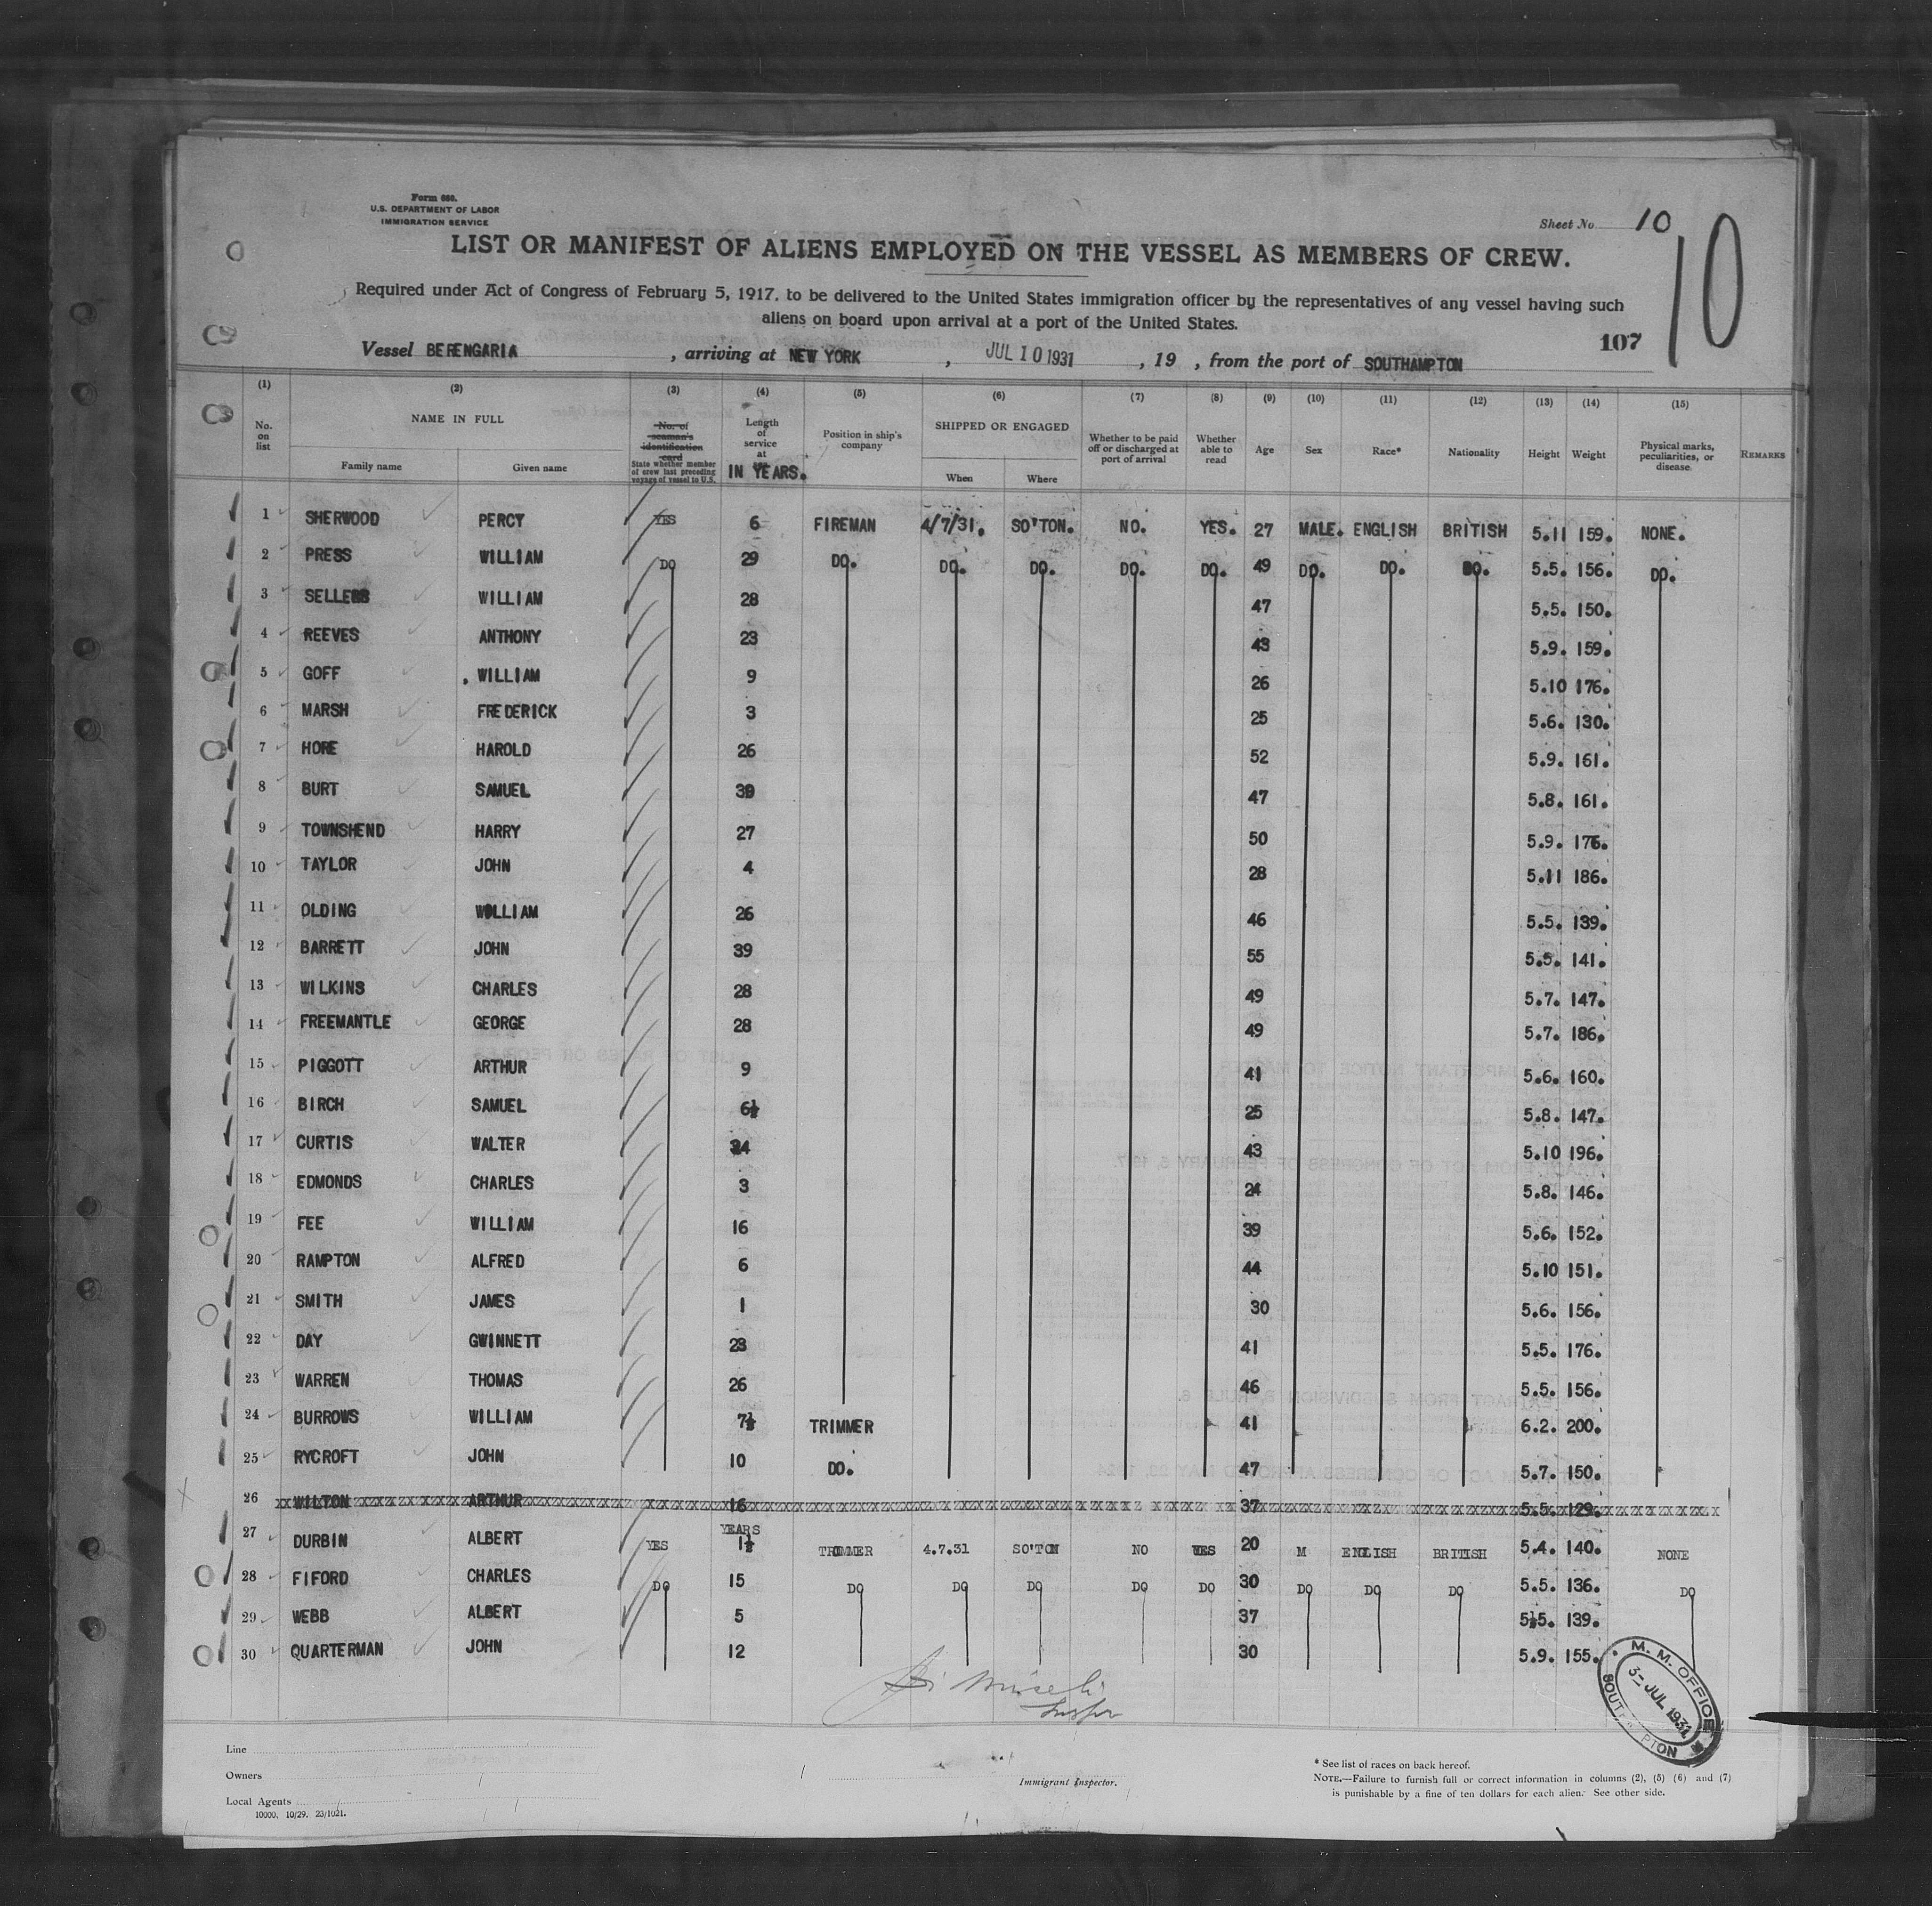 Form 680.
U.S. DEPARTMENT OF LABOR
IMMIGRATION SERVICE
Sheet No 10
10
LIST OR MANIFEST OF ALIENS EMPLOYED ON THE VESSEL AS MEMBERS OF CREW.
Required under Act of Congress of February 5, 1917, to be delivered to the United States immigration officer by the representatives of any vessel having such
aliens on board upon arrival at a port of the United States.
107
Vessel BERENGARIA , arriving at NEW YORK , JUL 10 1931 , 19 , from the port of SOUTHAMPTON
(1) (2) (3) (4) (5) (6) (7) (8) (9) (10) (11) (12) (13) (14) (15)
No. on list NAME IN FULL Family name Given name No. of seaman's identification card State whether member of crew last preceding voyage of vessel to U.S. Length of service at IN YEARS. Position in ship's company SHIPPED OR ENGAGED When Where Whether to be paid off or discharged at port of arrival Whether able to read Age Sex Race* Nationality Height Weight Physical marks, peculiarities, or disease REMARKS
1 SHERWOOD PERCY YES 6 FIREMAN 4/7/31. SO'TON. NO. YES. 27 MALE. ENGLISH BRITISH 5.11 159. NONE.
2 PRESS WILLIAM DO 29 DO. DO. DO. DO. DO. 49 DO. DO. DO. 5.5. 156. DO.
3 SELLERS WILLIAM 28 47 5.5. 150.
4 REEVES ANTHONY 23 43 5.9. 159.
5 GOFF WILLIAM 9 26 5.10 176.
6 MARSH FREDERICK 3 25 5.6. 130.
7 HORE HAROLD 26 52 5.9. 161.
8 BURT SAMUEL 39 47 5.8. 161.
9 TOWNSHEND HARRY 27 50 5.9. 176.
10 TAYLOR JOHN 4 28 5.11 186.
11 OLDING WILLIAM 26 46 5.5. 139.
12 BARRETT JOHN 39 55 5.5. 141.
13 WILKINS CHARLES 28 49 5.7. 147.
14 FREEMANTLE GEORGE 28 49 5.7. 186.
15 PIGGOTT ARTHUR 9 41 5.6. 160.
16 BIRCH SAMUEL 6½ 25 5.8. 147.
17 CURTIS WALTER 24 43 5.10 196.
18 EDMONDS CHARLES 3 24 5.8. 146.
19 FEE WILLIAM 16 39 5.6. 152.
20 RAMPTON ALFRED 6 44 5.10 151.
21 SMITH JAMES 1 30 5.6. 156.
22 DAY GWINNETT 23 41 5.5. 176.
23 WARREN THOMAS 26 46 5.5. 156.
24 BURROWS WILLIAM 7½ TRIMMER 41 6.2. 200.
25 RYCROFT JOHN 10 DO. 47 5.7. 150.
26 WILTON ARTHUR 16 37 5.5. 129.
27 DURBIN ALBERT YES YEARS 1½ TRIMMER 4.7.31 SO'TON NO YES 20 M ENGLISH BRITISH 5.4. 140. NONE
28 FIFORD CHARLES DO 15 DO DO DO DO DO 30 DO DO DO 5.5. 136. DO
29 WEBB ALBERT 5 37 5½5. 139.
30 QUARTERMAN JOHN 12 30 5.9. 155.
M. M. OFFICE
3- JUL 1931
SOUTHAMPTON
Line
Owners
Local Agents
10000. 10/29. 23/1021.
Immigrant Inspector.
* See list of races on back hereof.
NOTE.—Failure to furnish full or correct information in columns (2), (5) (6) and (7)
is punishable by a fine of ten dollars for each alien. See other side.